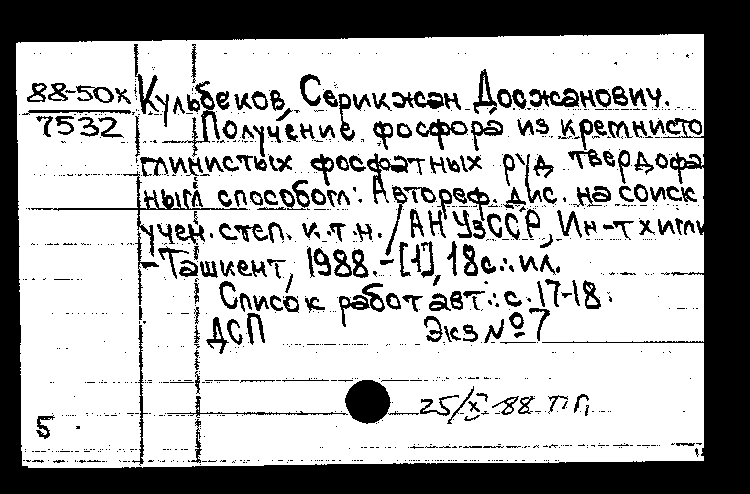 88-50х
7532
Кульбеков, Серикжан Досжанович.
Получение фосфора из кремнисто
глинистых фосфатных руд твердофа
ным способом: Автореф. дис. на соиск.
учен. степ. к.т.н. / АН УзССР, Ин-т хими
- Ташкент, 1988. - [1], 18с.: ил.
Список работ авт.: с. 17-18.
ДСП Экз № 7
25/X 88
5